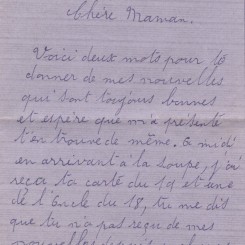 Chère Maman.
Voici deux mots pour te
donner de mes nouvelles
qui sont toujours bonnes
et espère que m'a présente
t'en trouve de même. E midi
en arrivant à la soupe, j'ai
reçu ta carte du 19 et une
de l'Encle du 18, tu me dis
que tu n'a pas reçue de mes
nouvelles depuis